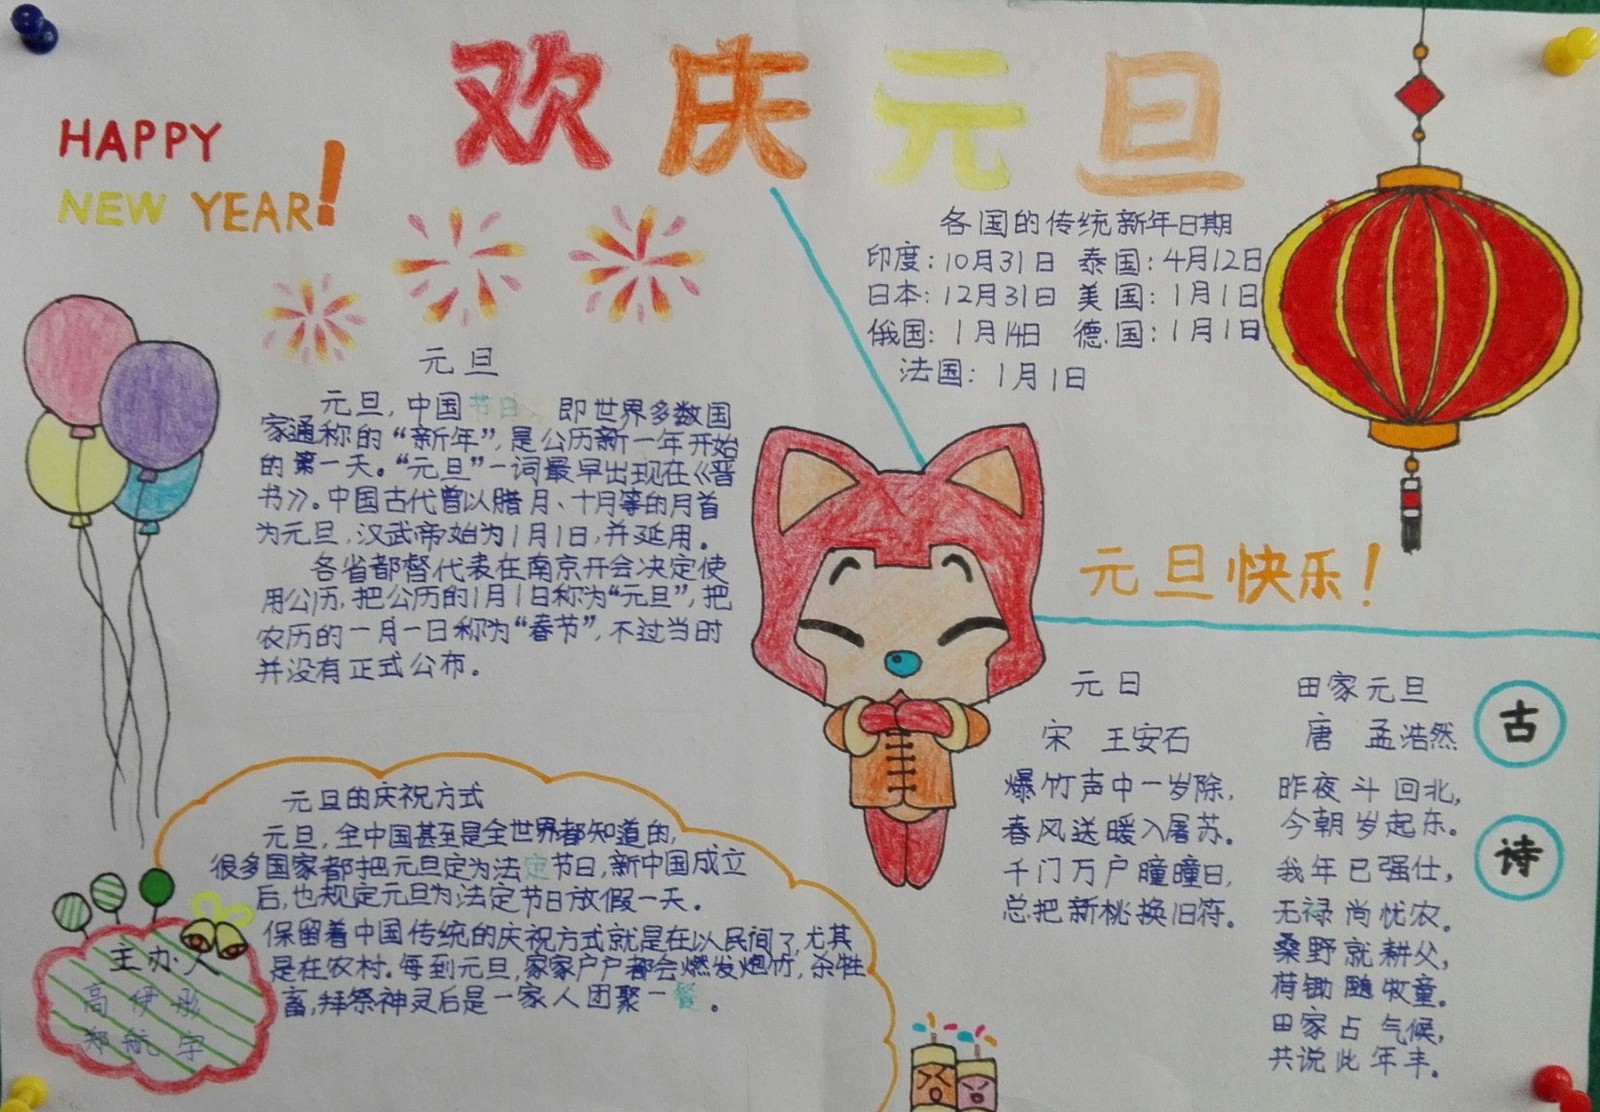 欢庆元旦
HAPPY
NEW YEAR!
各国的传统新年日期
印度:10月31日 泰国:4月12日
日本:12月31日 美国:1月1日
俄国:1月14日 德国:1月1日
法国:1月1日
元旦
元旦,中国节日,即世界多数国
家通称的“新年”,是公历新一年开始
的第一天。“元旦”一词最早出现在《晋
书》。中国古代曾以腊月、十月等的月首
为元旦,汉武帝始为1月1日,并延用。
各省都督代表在南京开会决定使
用公历,把公历的1月1日称为“元旦”,把
农历的一月一日称为“春节”,不过当时
并没有正式公布。
元旦快乐!
元旦的庆祝方式
元旦,全中国甚至是全世界都知道的,
很多国家都把元旦定为法定节日,新中国成立
后,也规定元旦为法定节日放假一天。
保留着中国传统的庆祝方式就是在以民间了,尤其
是在农村。每到元旦,家家户户都会燃发炮竹,杀牲
畜,拜祭神灵后是一家人团聚一餐。
主办人
高伊彤
郑航宇
古诗
元日
宋 王安石
爆竹声中一岁除,
春风送暖入屠苏。
千门万户瞳瞳日,
总把新桃换旧符。
田家元旦
唐 孟浩然
昨夜斗回北,
今朝岁起东。
我年已强仕,
无禄尚忧农。
桑野就耕父,
荷锄随牧童。
田家占气候,
共说此年丰。